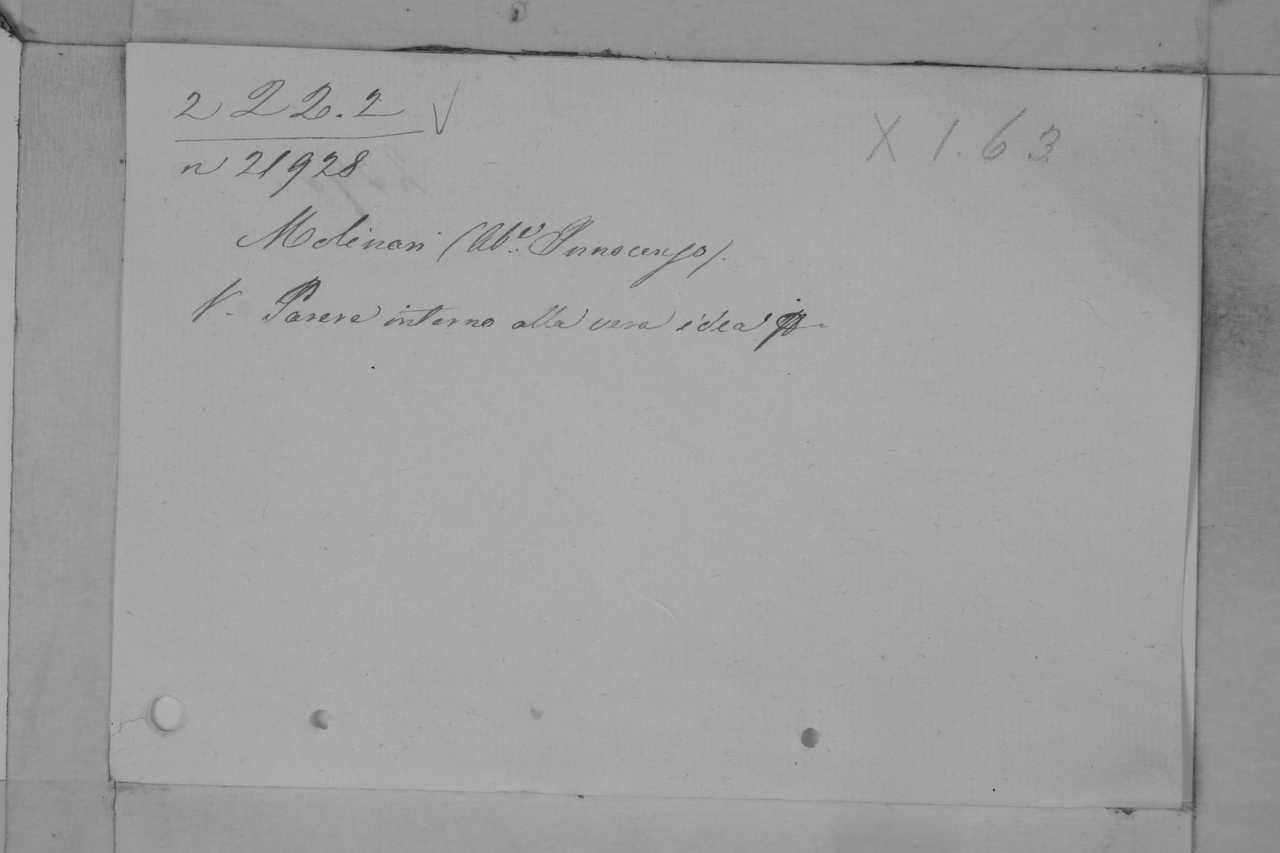 2 22.2 √
X 1.63
n 21928
Molinari (Ab.e Innocenzo).
V. Parere intorno alla vera idea